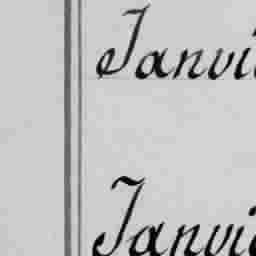 Janvi
Janvi